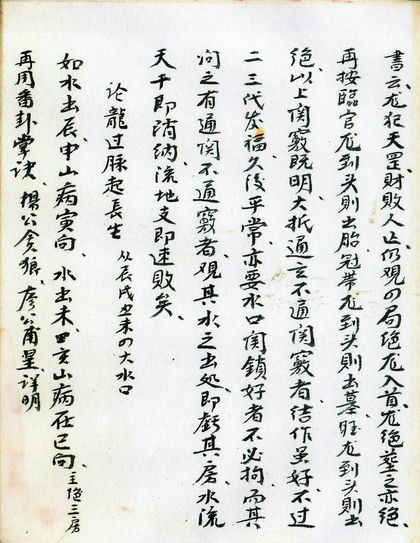 書云龙犯天罡財敗人亡仍观の局绝龙入首龙绝墓之亦绝
再按臨官龙到头則出胎冠帶龙到头則出墓旺龙到头則出
绝以上関竅既明大抵通言不通関竅者结作虽好不过
二三代发福久後平常亦要水口関鎖好者不必拘而其
问之有通関不通竅者观其水之出処即虧其房水流
天干即消納流地支即速敗矣
论龍过脉起長生 从辰戌丑未の大水口
如水出辰申山病寅向水出未四亥山病在巳向 主绝三房
再用番卦掌诀楊公貪狼廖公甫星详明